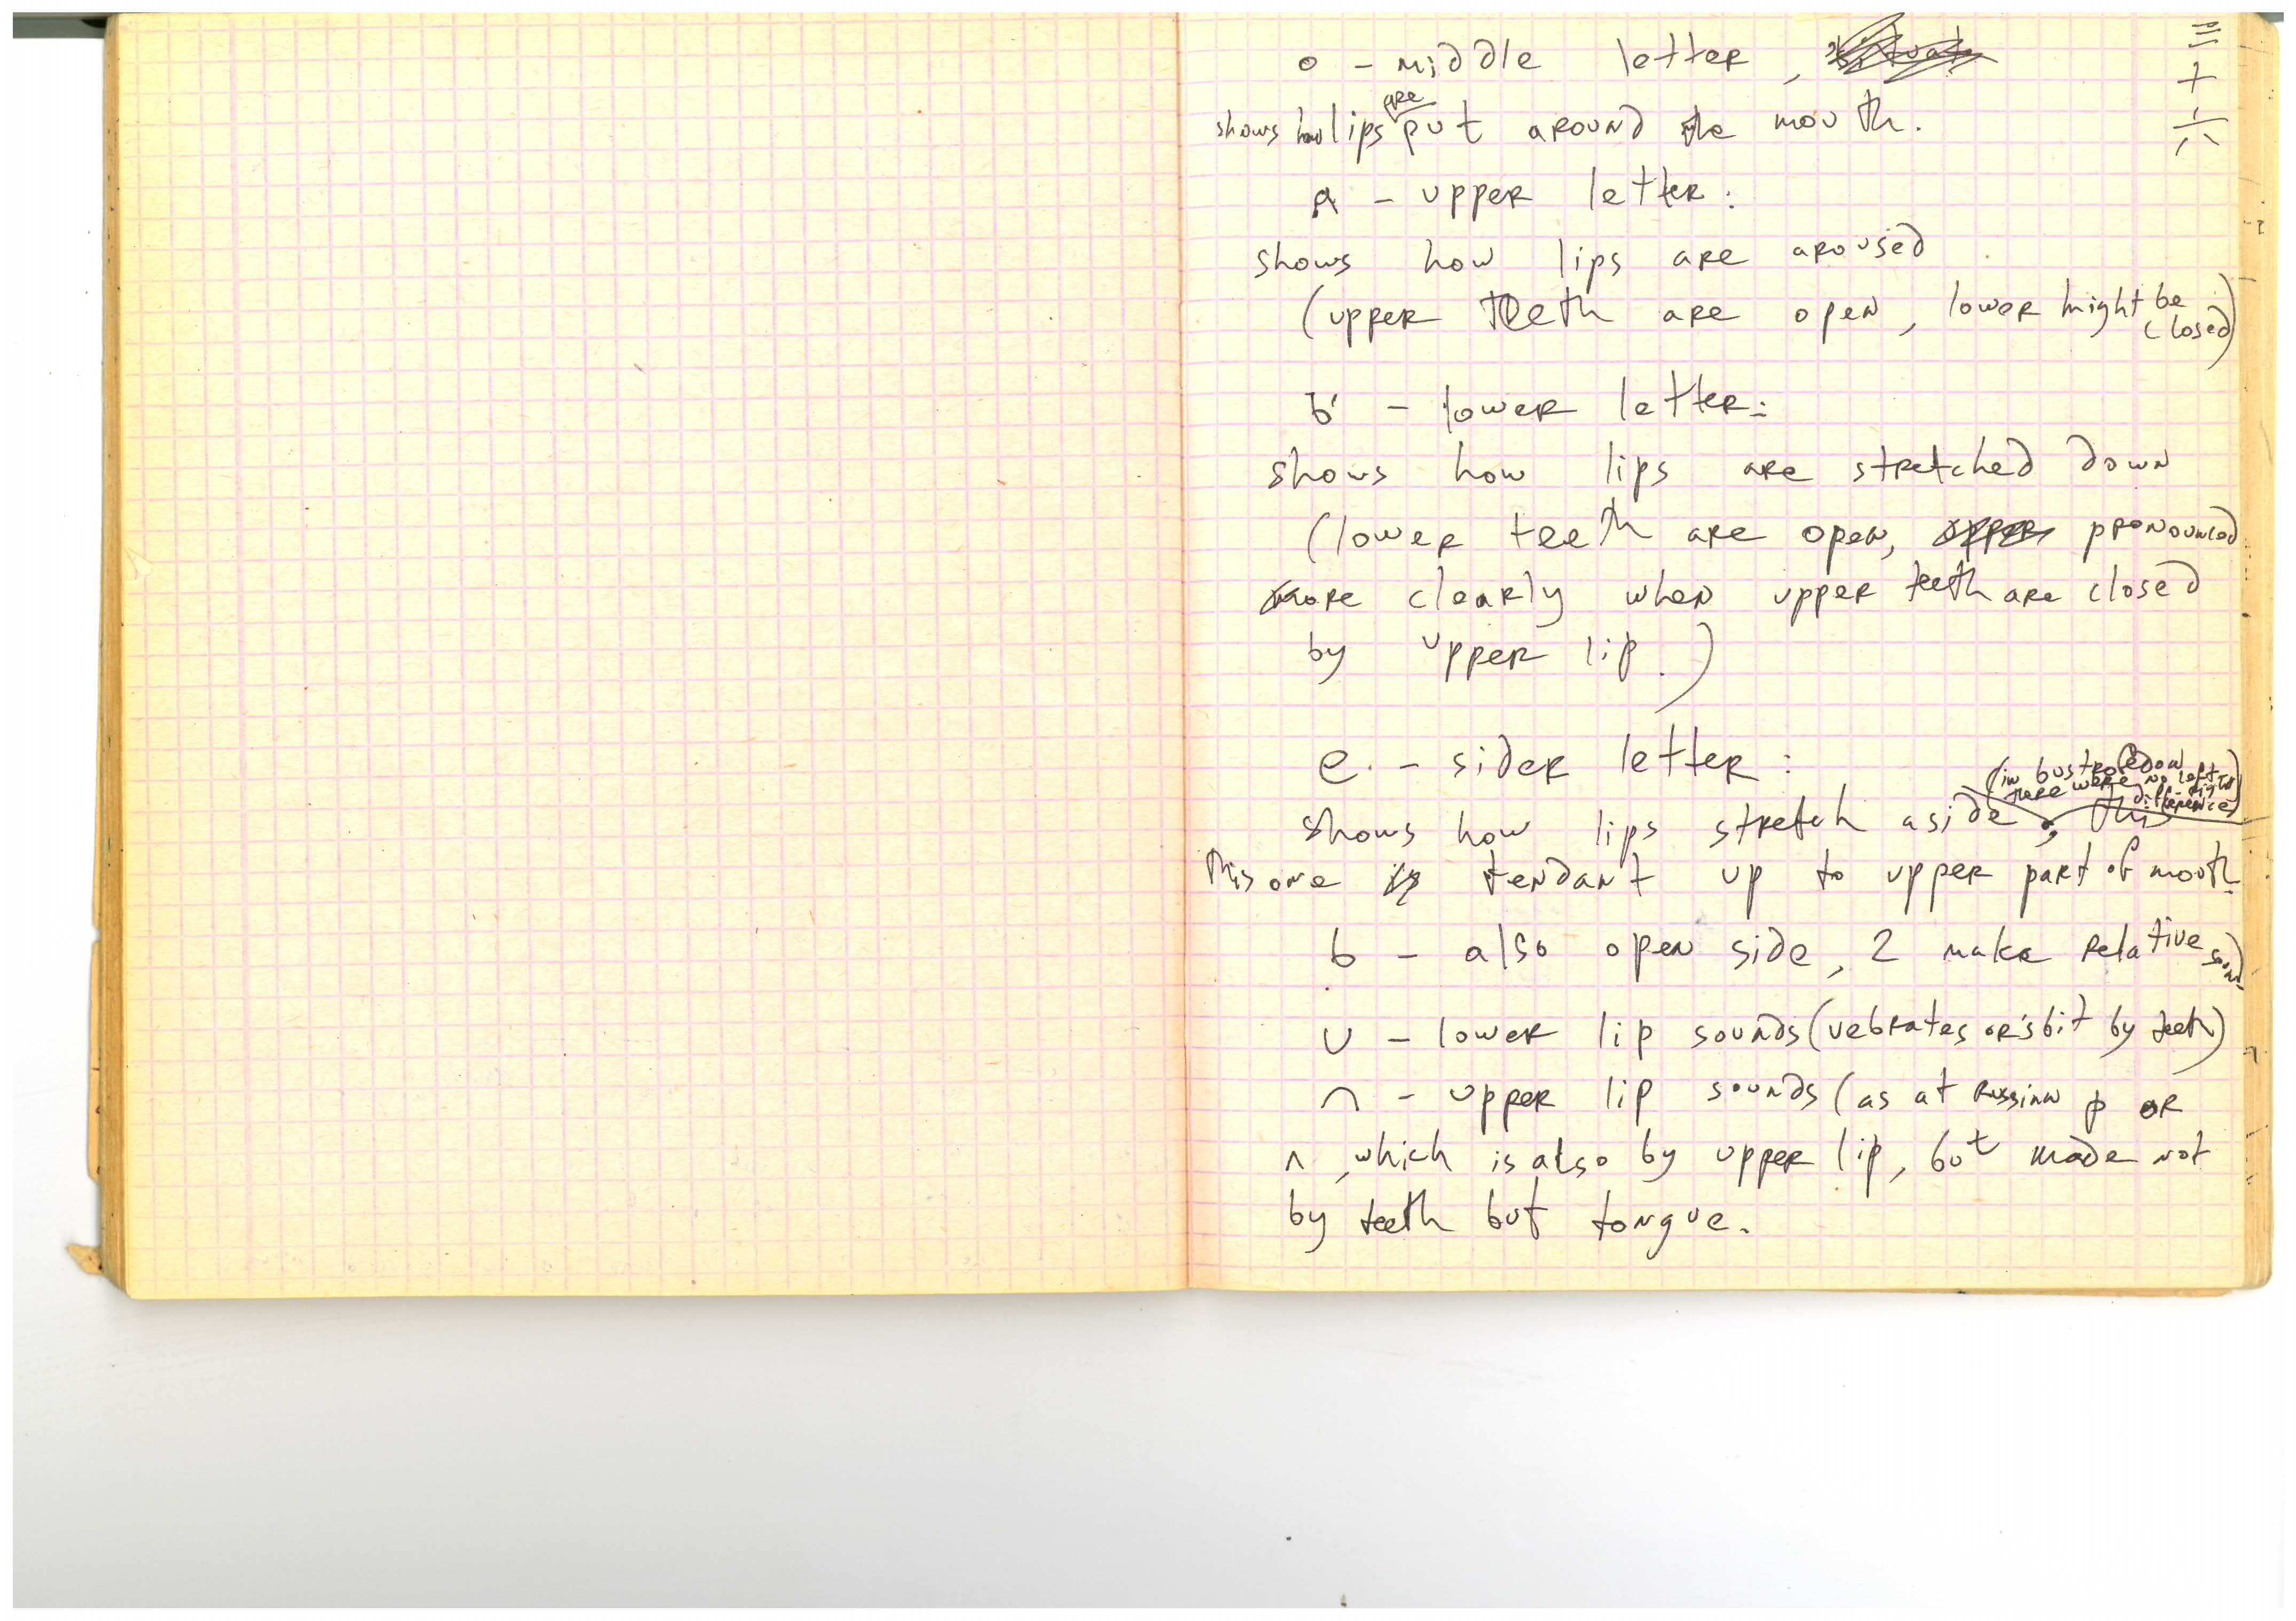 三十六
o - middle letter,
shows how lips are put around the mouth.
a - upper letter:
shows how lips are aroused
(upper teeth are open, lower might be closed)
- lower letter:
shows how lips are stretched down
(lower teeth are open, pronounced
more clearly when upper teeth are closed
by upper lip.)
e - sider letter:
(in bustrofedon
there were no left-right
difference)
shows how lips stretch aside,
this one tendant up to upper part of mouth.
b - also open side, 2 make relative sound.
U - lower lip sounds (vebrates or's bit by teeth)
∩ - upper lip sounds (as at Russian p or
л, which is also by upper lip, but made not
by teeth but tongue.